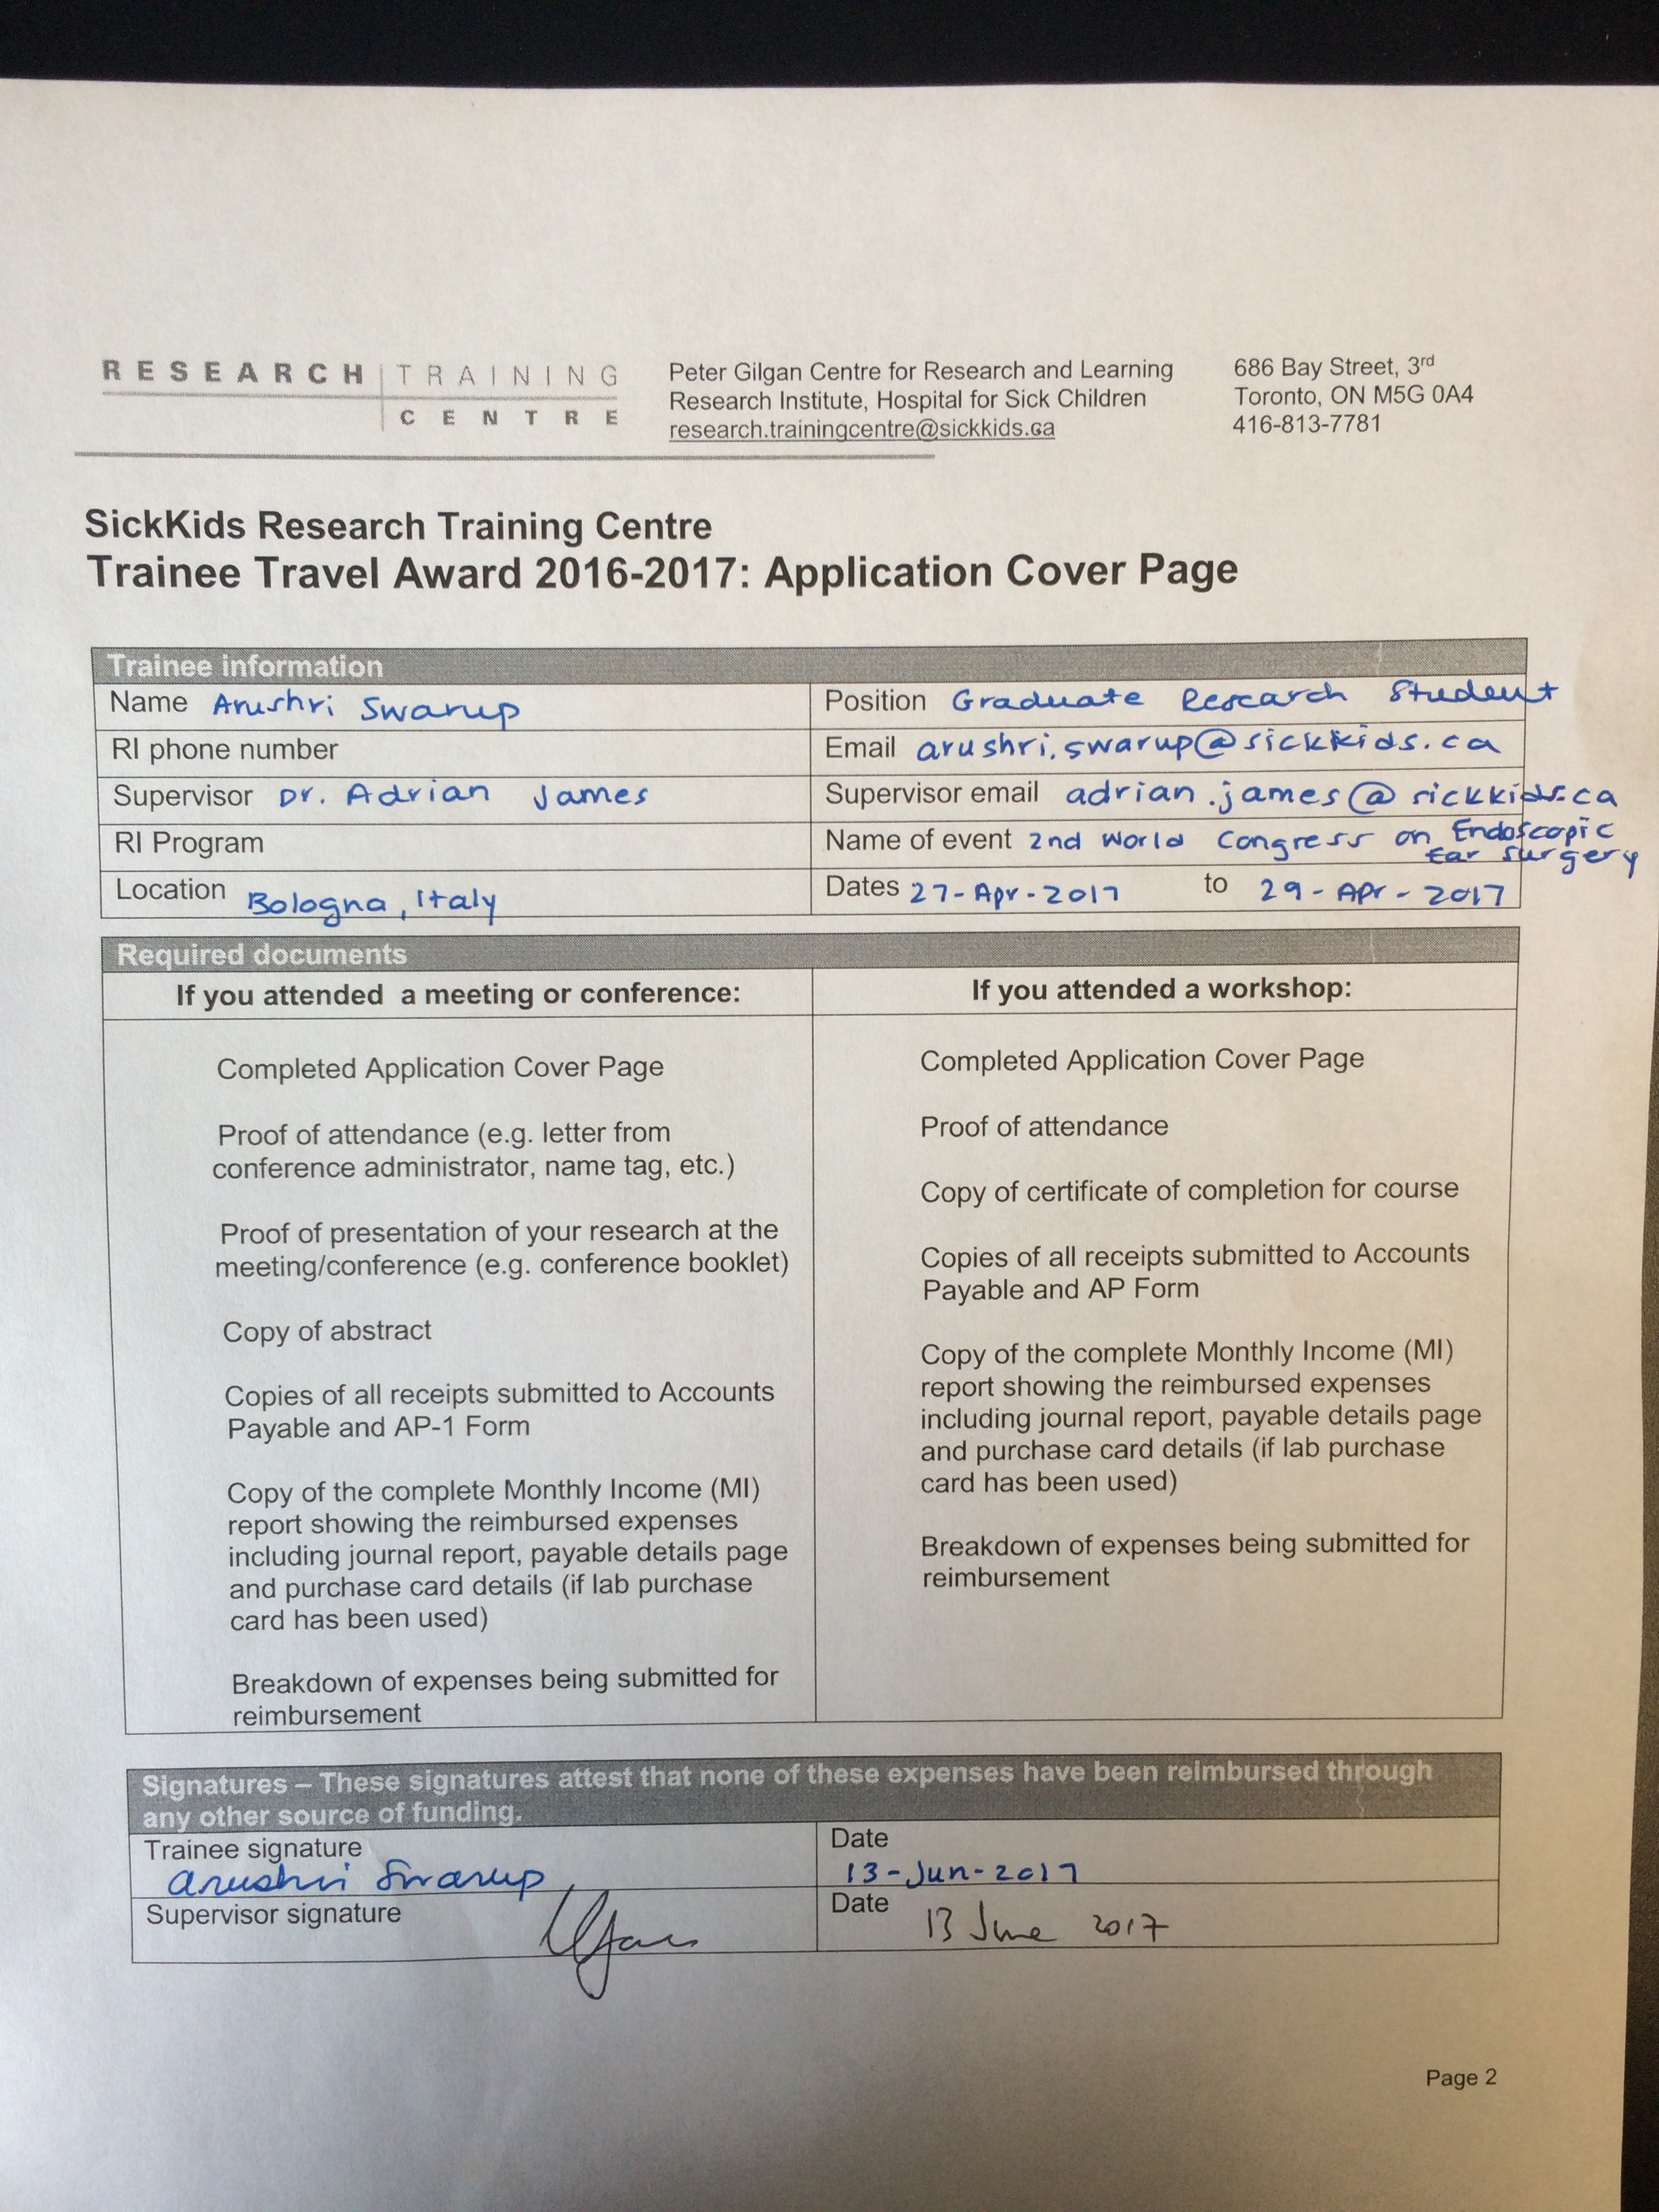 RESEARCH TRAINING
CENTRE
Peter Gilgan Centre for Research and Learning
Research Institute, Hospital for Sick Children
research.trainingcentre@sickkids.ca
686 Bay Street, 3rd
Toronto, ON M5G 0A4
416-813-7781
SickKids Research Training Centre
Trainee Travel Award 2016-2017: Application Cover Page
Trainee information
Name Arushri Swarup
Position Graduate Research Student
RI phone number
Email arushri.swarup@sickkids.ca
Supervisor Dr. Adrian James
Supervisor email adrian.james@sickkids.ca
RI Program
Name of event 2nd World Congress on Endoscopic
Ear Surgery
Location Bologna, Italy
Dates 27-Apr-2017 to 29-Apr-2017
Required documents
If you attended a meeting or conference:
Completed Application Cover Page
Proof of attendance (e.g. letter from
conference administrator, name tag, etc.)
Proof of presentation of your research at the
meeting/conference (e.g. conference booklet)
Copy of abstract
Copies of all receipts submitted to Accounts
Payable and AP-1 Form
Copy of the complete Monthly Income (MI)
report showing the reimbursed expenses
including journal report, payable details page
and purchase card details (if lab purchase
card has been used)
Breakdown of expenses being submitted for
reimbursement
If you attended a workshop:
Completed Application Cover Page
Proof of attendance
Copy of certificate of completion for course
Copies of all receipts submitted to Accounts
Payable and AP Form
Copy of the complete Monthly Income (MI)
report showing the reimbursed expenses
including journal report, payable details page
and purchase card details (if lab purchase
card has been used)
Breakdown of expenses being submitted for
reimbursement
Signatures – These signatures attest that none of these expenses have been reimbursed through
any other source of funding.
Trainee signature
Arushri Swarup
Date
13-Jun-2017
Supervisor signature
Date
13 June 2017
Page 2